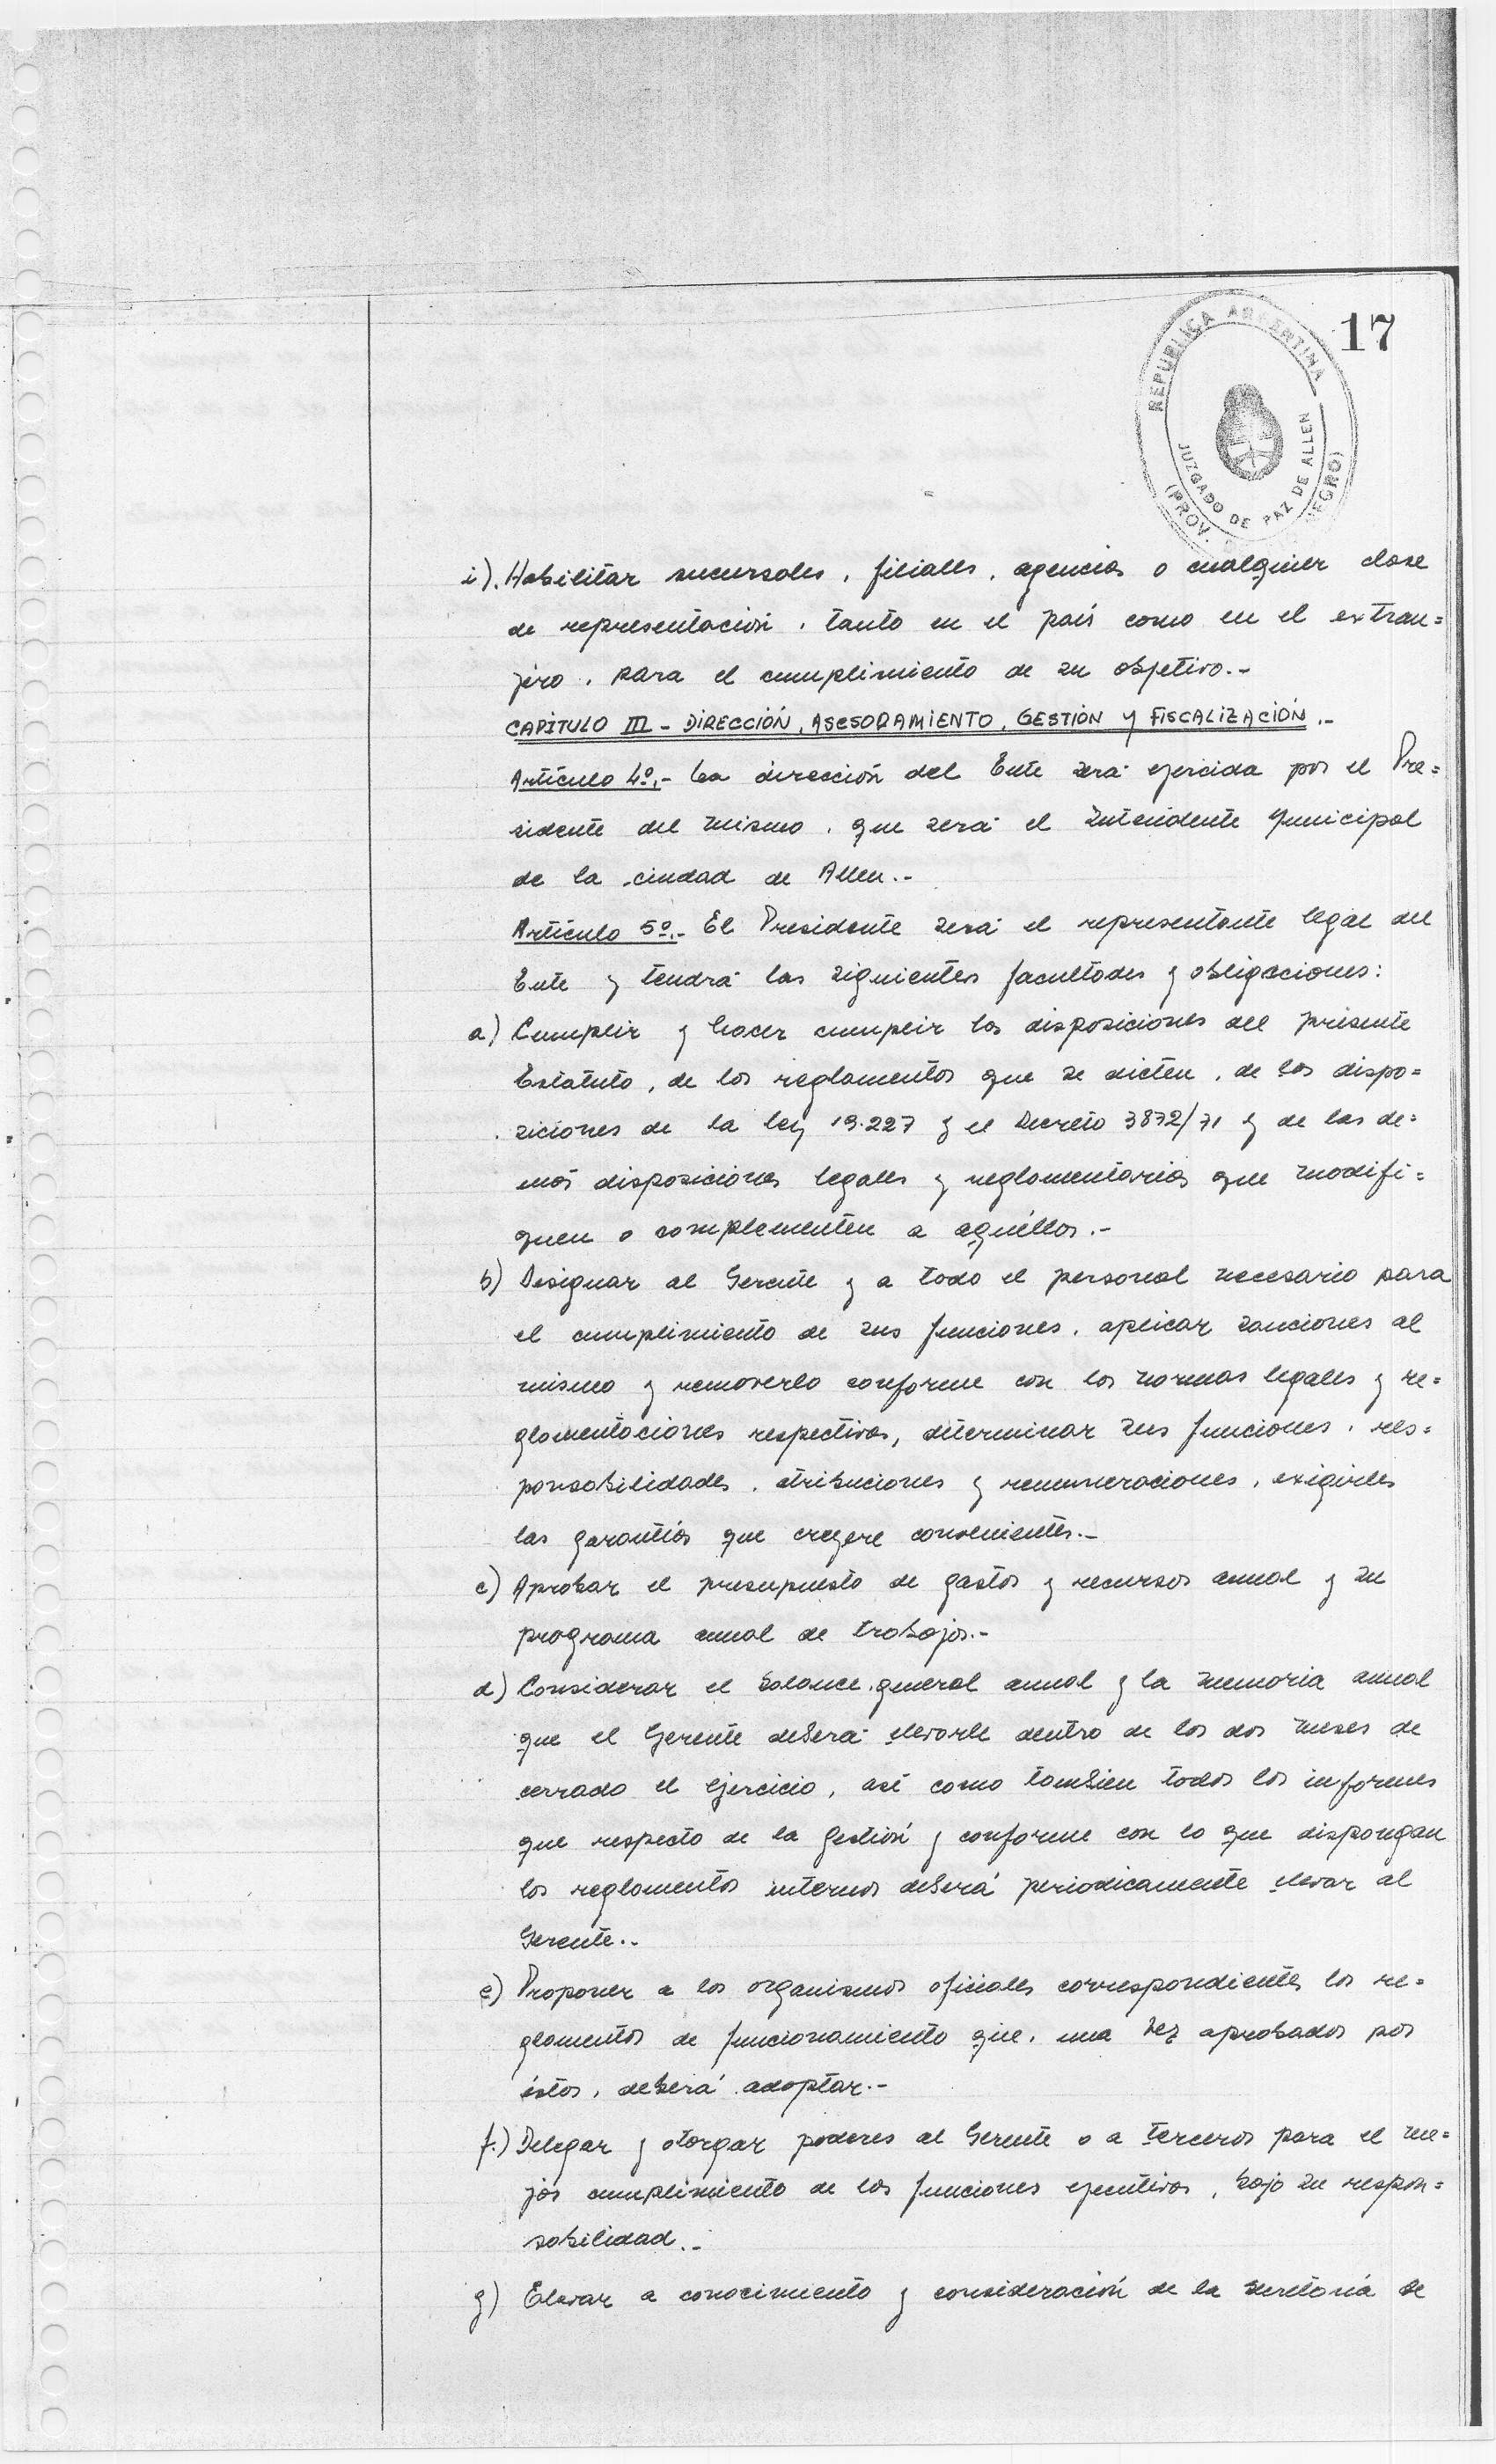 17
REPUBLICA ARGENTINA
JUZGADO DE PAZ DE ALLEN
(PROV. NEGRO)
i). Habilitar sucursales, filiales, agencias o cualquier clase
de representación, tanto en el país como en el extran=
jero, para el cumplimiento de su objetivo.-
CAPÍTULO III - DIRECCIÓN, ASESORAMIENTO, GESTIÓN Y FISCALIZACIÓN.-
Artículo 4º.- La dirección del Ente será ejercida por el Pre=
sidente del mismo, que será el Intendente Municipal
de la ciudad de Allen.-
Artículo 5º.- El Presidente será el representante legal del
Ente y tendrá las siguientes facultades y obligaciones:
a) Cumplir y hacer cumplir las disposiciones del presente
Estatuto, de los reglamentos que se dicten, de las dispo=
siciones de la ley 19.227 y el Decreto 3872/71 y de las de=
más disposiciones legales y reglamentarias que modifi=
quen o complementen a aquéllos.-
b) Designar al Gerente y a todo el personal necesario para
el cumplimiento de sus funciones, aplicar sanciones al
mismo y removerlo conforme con las normas legales y re=
glamentaciones respectivas, determinar sus funciones, res=
ponsabilidades, atribuciones y remuneraciones, exigirles
las garantías que creyere convenientes.-
c) Aprobar el presupuesto de gastos y recursos anual y su
programa anual de trabajos.-
d) Considerar el balance general anual y la memoria anual
que el Gerente deberá elevarle dentro de los dos meses de
cerrado el ejercicio, así como tambien todos los informes
que respecto de la gestión y conforme con lo que dispongan
los reglamentos internos deberá periodicamente elevar al
Gerente.-
e) Proponer a los organismos oficiales correspondientes los re=
glamentos de funcionamiento que, una vez aprobados por
éstos, deberá adoptar.-
f.) Delegar y otorgar poderes al Gerente o a terceros para el me=
jor cumplimiento de las funciones ejecutivas, bajo su respon=
sabilidad.-
g) Elevar a conocimiento y consideración de la Secretaría de